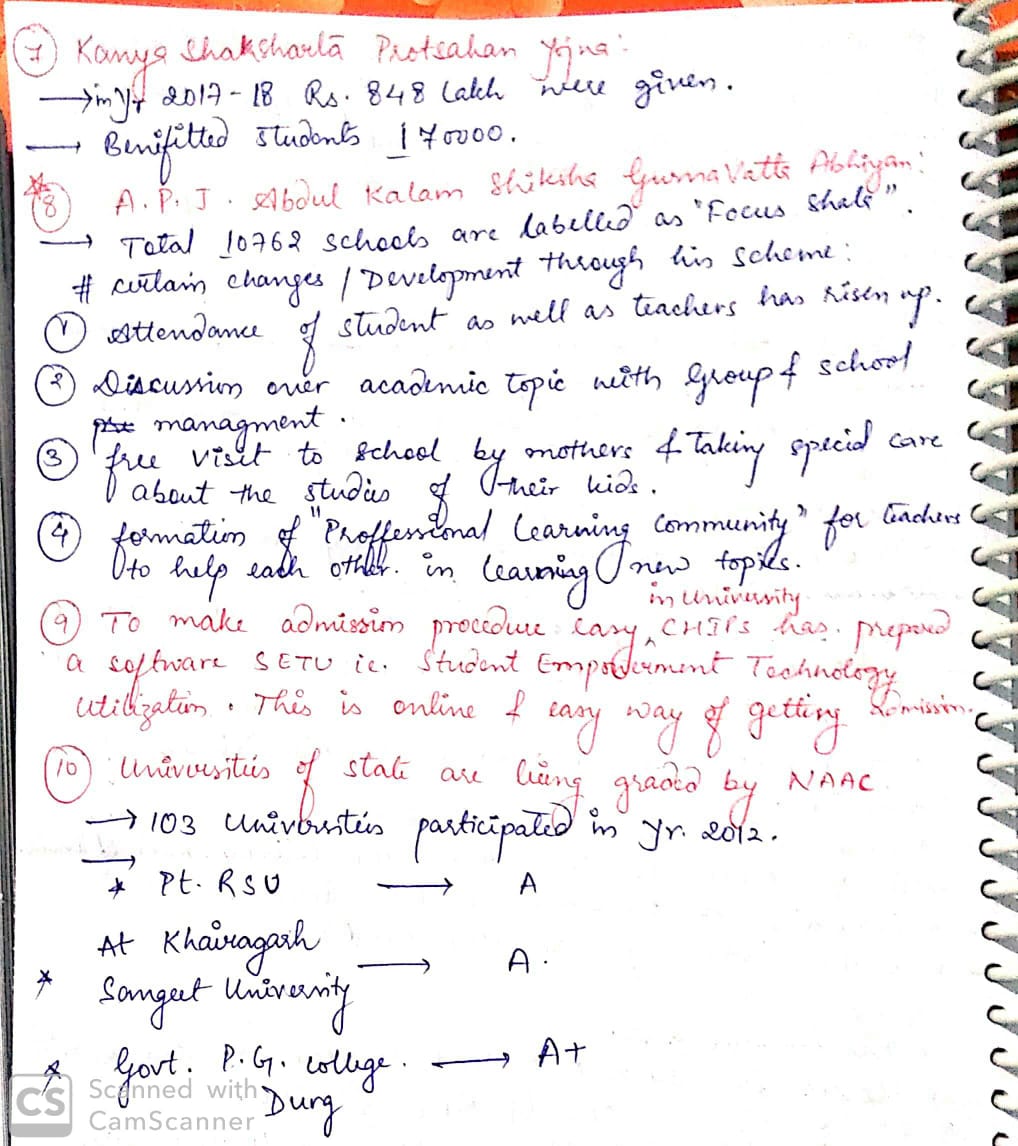 7 Kanya Shaksharta Protsahan Yojna:
→ in yr 2017-18 Rs. 848 Lakh were given.
→ Benifitted students 170000.
8 A.P.J. Abdul Kalam Shiksha Gunna Vatta Abhiyan:
→ Total 10762 schools are labelled as "Focus Shala".
# certain changes / Development through his scheme:
1 Attendance of student as well as teachers has risen up.
2 Discussion over academic topic with group of school
managment.
3 free visit to school by mothers & Taking special care
about the studies of their kids.
4 formation of "Proffessional Learning Community" for teachers
to help each other. in learning new topics.
in University
9 To make admission procedure easy ^ CHIPs has. prepared
a software SETU ie. Student Empowerment Technology
Utilization. This is online & easy way of getting admission.
10 Universities of state are being graded by NAAC
→ 103 Universiteis participated in yr. 2012.
→
* Pt. RSU → A
At Khairagarh
→ A.
* Sangeet University
* Govt. P.G. college. → A+
Durg
CS Scanned with
CamScanner